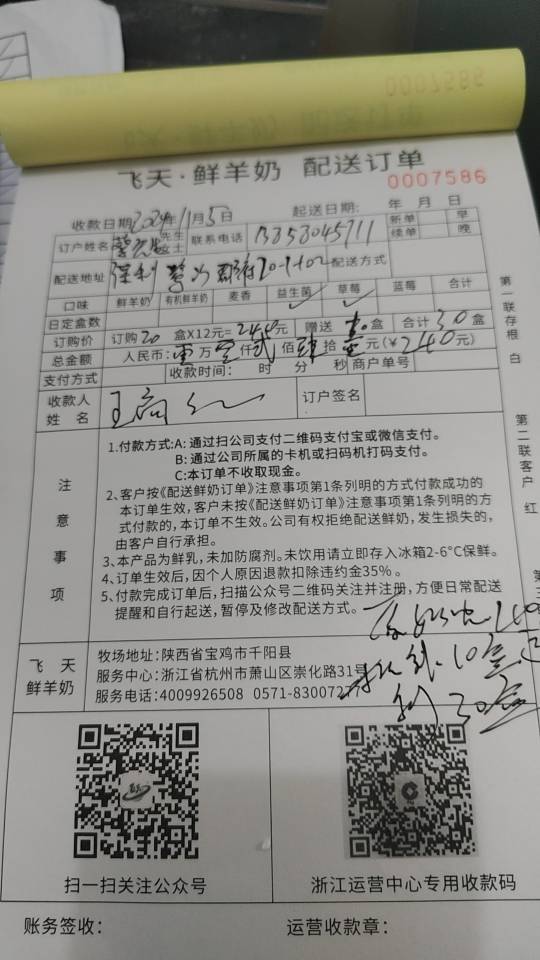 飞天·鲜羊奶 配送订单
0007586
收款日期2024年11月5日 起送日期: 年 月 日
订户姓名 先生 女士 联系电话 1353045711 新单 续单 早 晚
配送地址 保利 20-1-1102 配送方式
口味 鲜羊奶 有机鲜羊奶 麦香 益生菌 草莓 蓝莓 合计
日定盒数 ✓ ✓
订购价 订购20盒X12元=240元 赠送 盒 合计30盒
总金额 人民币: 万 仟贰佰肆拾 元(¥240元)
支付方式 收款时间: 时 分 秒 商户单号
收款人姓名 王 订户签名
注意事项
1.付款方式:A: 通过扫公司支付二维码支付宝或微信支付。
B: 通过公司所属的卡机或扫码机打码支付。
C:本订单不收取现金。
2、客户按《配送鲜奶订单》注意事项第1条列明的方式付款成功的
本订单生效，客户未按《配送鲜奶订单》注意事项第1条列明的方
式付款的，本订单不生效。公司有权拒绝配送鲜奶，发生损失的，
由客户自行承担。
3、本产品为鲜乳，未加防腐剂。未饮用请立即存入冰箱2-6°C保鲜。
4、订单生效后，因个人原因退款扣除违约金35%。
5、付款完成订单后，扫描公众号二维码关注并注册，方便日常配送
提醒和自行起送，暂停及修改配送方式。
10盒
30盒
飞天鲜羊奶
牧场地址:陕西省宝鸡市千阳县
服务中心:浙江省杭州市萧山区崇化路31号
服务电话:4009926508 0571-8300727
第一联存根 白
第二联客户 红
第三
扫一扫关注公众号
浙江运营中心专用收款码
账务签收: 运营收款章: